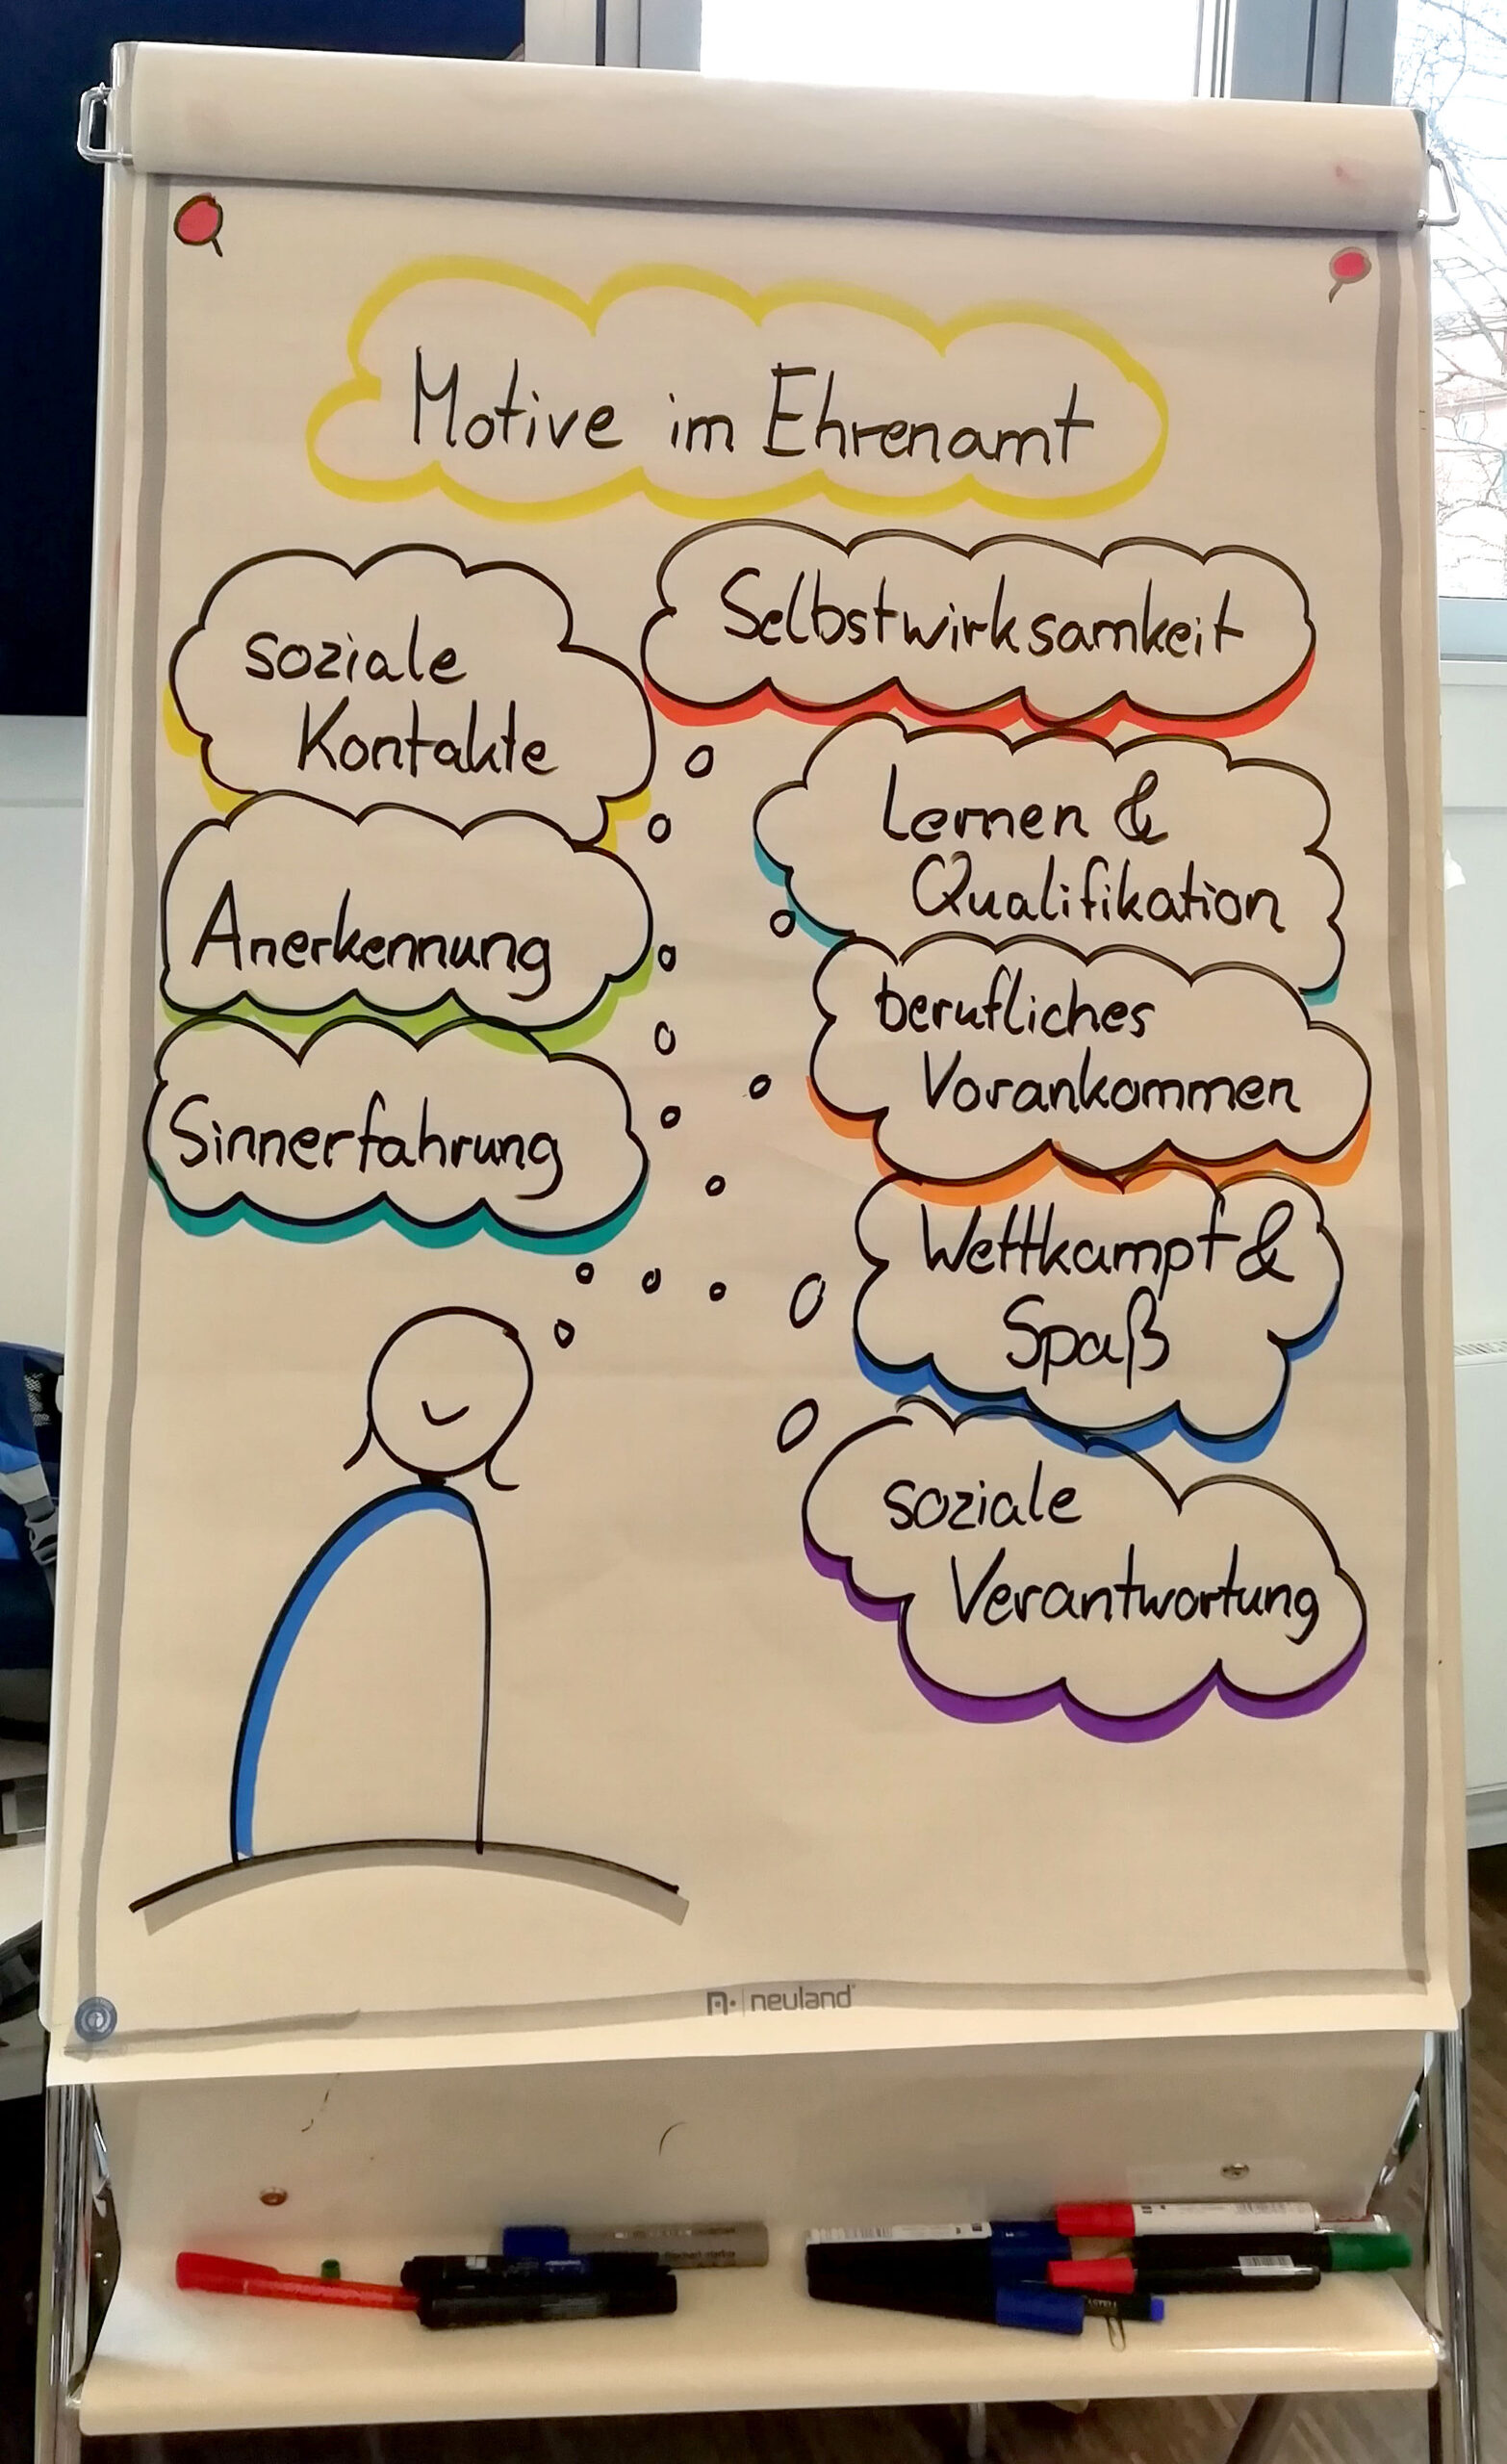 Motive im Ehrenamt
soziale
Kontakte
Anerkennung
Sinnerfahrung
Selbstwirksamkeit
Lernen &
Qualifikation
berufliches
Vorankommen
Wettkampf &
Spaß
soziale
Verantwortung
n. neuland